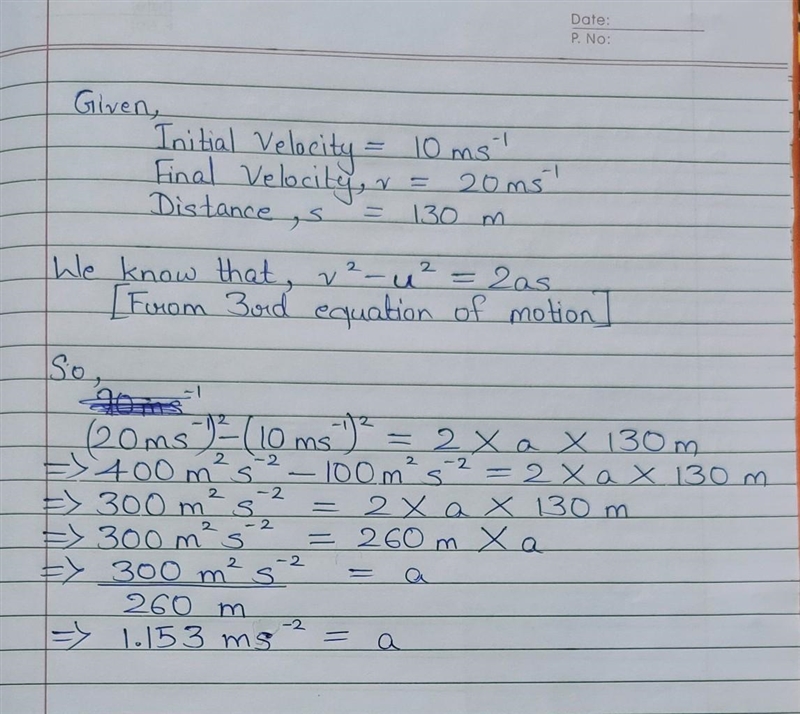 Date:
P. No:
Given,
Initial Velocity = 10 ms⁻¹
Final Velocity, v = 20 ms⁻¹
Distance, s = 130 m
We know that, v² - u² = 2as
[From 3rd equation of motion]
So,
(20 ms⁻¹)² - (10 ms⁻¹)² = 2 × a × 130 m
=> 400 m² s⁻² - 100 m² s⁻² = 2 × a × 130 m
=> 300 m² s⁻² = 2 × a × 130 m
=> 300 m² s⁻² = 260 m × a
=> 300 m² s⁻² = a
260 m
=> 1.153 ms⁻² = a